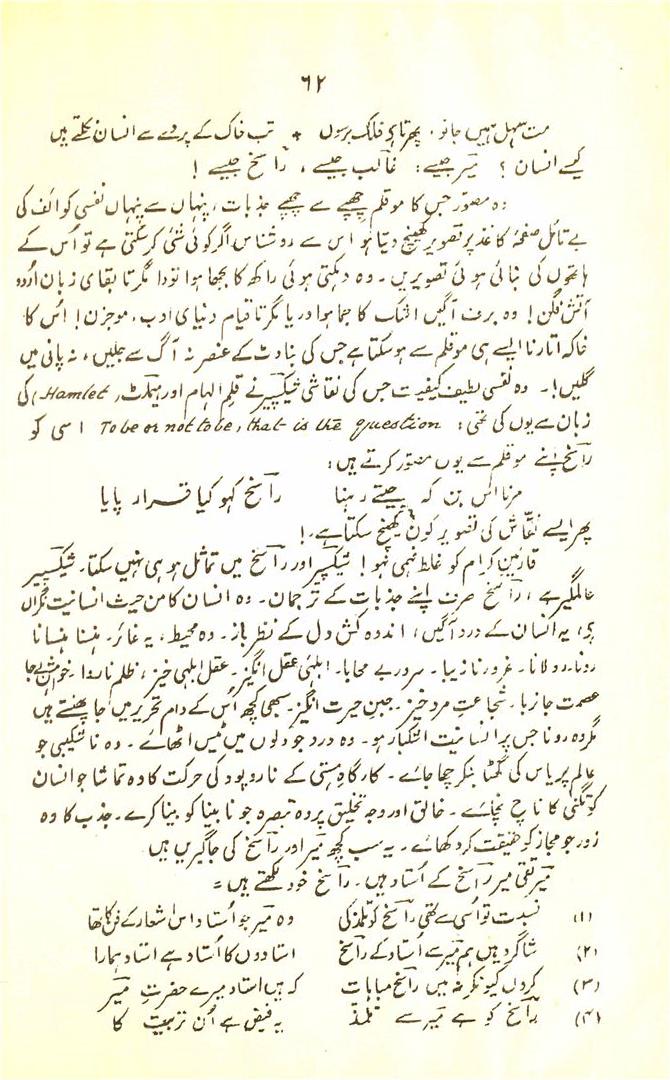 ٦٢
مت سہل ہمیں جانو، پھرتا ہے فلک برسوں + تب خاک کے پردے سے انسان نکلتے ہیں
کیسے انسان؟ میر جیسے: غالب جیسے، راسخ جیسے!
وہ مصور جس کا موقلم چھپے سے چھپے جذبات، پنہاں سے پنہاں نفسی کوائف کی
بے تامل صفحۂ کاغذ پر تصویر کھینچ دیتا ہو اس سے روشناس اگر کوئی شئی کرسکتی ہے تو اُس کے
ہاتھوں کی بنائی ہوئی تصویریں۔ وہ دہکتی ہوئی راکھ کا بجھا ہوا تودا مگر تا بقای زبان اُردو
آتش فگن! وہ برف آگیں اشک کا جما ہوا دریا مگر تا قیام دنیای ادب، موجزن! اُس کا
خاکہ اتارنا ایسے ہی موقلم سے ہوسکتا ہے جس کی بناوٹ کے عنصر نہ آگ سے جلیں، نہ پانی میں
گلیں!۔ وہ نفسی لطیف کیفیت جس کی نقاشی شیکسپیر نے قلمِ الہام اور ہیملٹ، (Hamlet) کی
زبان سے یوں کی تھی: To be or not to be, that is the question اسی کو
راسخ اپنے موقلم سے یوں مصور کرتے ہیں:
مرنا اس بن کہ جیتے رہنا راسخ کہو کیا قرار پایا
پھر ایسے نقاش کی تصویر کون کھینچ سکتا ہے۔!
قارئین کرام کو غلط فہمی نہو! شیکسپیر اور راسخ میں تماثل ہو ہی نہیں سکتا۔ شیکسپیر
عالمگیر ہے، راسخ صرف اپنے جذبات کے ترجمان۔ وہ انسان کا من حیث انسانیت نگراں
یہ انسان کے درد آگیں، اندوہ کش دل کے نظر باز۔ وہ محیط، یہ غائر۔ ہنسنا ہنسانا
رونا۔ رولانا۔ غرور نازیبا۔ سرور بے محابا۔ ابلہئی عقل انگیز۔ عقل ابلہی خیز، ظلم ناروا۔ خواہش بیجا
عصمت جازبا۔ شجاعت مرد خیز۔ جبن حیرت انگیز۔ سبھی کچھ اُس کے دام تحریر میں جا پھنستے ہیں
مگر وہ رونا جس پر انسانیت اشکبار ہو۔ وہ درد جو دلوں میں ٹیس اٹھائے۔ وہ ناشکیبی جو
عالم پر یاس کی گھٹا بنکر چھا جائے۔ کارگاہِ ہستی کے تاروپود کی حرکت کا وہ تماشا جو انسان
کو تگنی کا ناچ نچائے۔ خالق اور وجہ تخلیق پر وہ تبصرہ جو نابینا کو بینا کرے۔ جذب کا وہ
زور جو مجاز کو حقیقت کر دکھائے۔ یہ سب کچھ میر اور راسخ کی جاگیریں ہیں
میر تقی میر راسخ کے اُستاد ہیں۔ راسخ خود لکھتے ہیں =
(۱) نسبت تو اُسی سے تھی راسخ کو تلمذ کی وہ میر جو اُستاد اس اشعار کے فن کا تھا
(۲) شاگرد ہیں ہم میر سے اُستاد کے راسخ استادوں کا اُستاد ہے استاد ہمارا
(۳) کروں کیونکر نہ میں راسخ مباہات کہ ہیں استاد میرے حضرتِ میر
(۴) راسخ کو ہے میر سے تلمذ یہ فیض ہے اُن تربیت کا